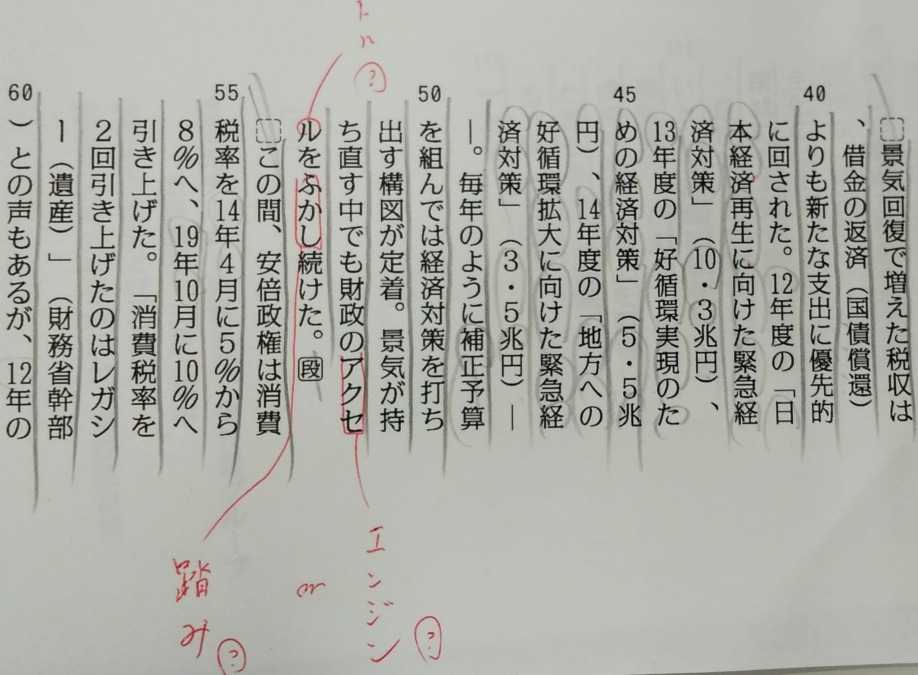 景気回復で増えた税収は
、借金の返済（国債償還）
よりも新たな支出に優先的
40
に回された。12年度の「日
本経済再生に向けた緊急経
済対策」（10・3兆円）、
13年度の「好循環実現のた
めの経済対策」（5・5兆
45
円）、14年度の「地方への
好循環拡大に向けた緊急経
済対策」（3・5兆円）―
―。毎年のように補正予算
を組んでは経済対策を打ち
50
出す構図が定着。景気が持
ち直す中でも財政のアクセ
ルをふかし続けた。段
この間、安倍政権は消費
税率を14年4月に5％から
55
8％へ、19年10月に10％へ
引き上げた。「消費税率を
2回引き上げたのはレガシ
ー（遺産）」（財務省幹部
）との声もあるが、12年の
60
？
エンジン？
or
踏み？